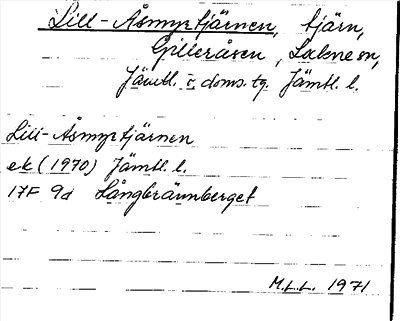 Lill-Åsmyrtjärnen, tjärn,
Gilleråsen, Lakne sn,
Jämtl. v. doms. tg. Jämtl. l.
Lill-Åsmyrtjärnen
ek (1970) Jämtl. l.
17F 9d Långbrännberget
M.L.L. 1971